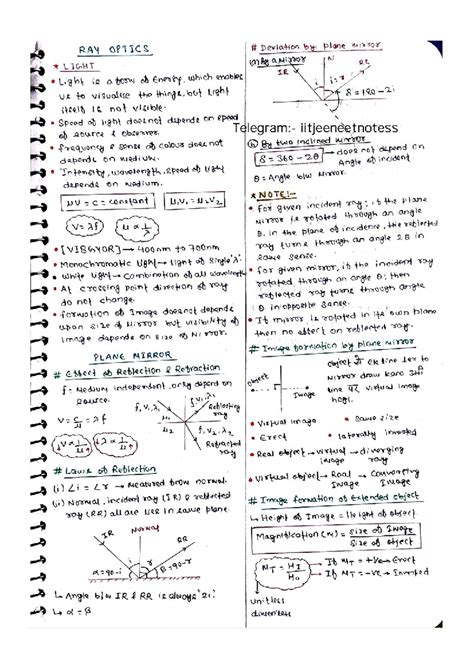 RAY OPTICS
* LIGHT
• Light is a form of Energy, which enables
us to visualise the things, but light
itself is not visible.
• Speed of light does not depends on speed
of source & observer.
• frequency & sense of colour does not
depends on medium.
• Intensity, wavelength, speed of light
depends on Medium.
μV = C = constant
μ₁V₁ = μ₂V₂
V = λf
μ ∝ 1/λ
• [VIBGYOR] → 400nm to 700nm
• Monochromatic light → light of single 'λ'
• White light → Combination of all wavelength
• At crossing point direction of ray
do not change.
• formation of Image doesnot depends
upon size of Mirror but visibility of
image depends on size of Mirror.
PLANE MIRROR
# Effect of Reflection & Refraction
f = Medium independent, only depend on
source.
V = C/μ = λf
V ∝ 1/μ
λ ∝ 1/μ
f, V₁, λ₁
f, V₁, λ₁
Reflecting
ray
μ₁
μ₂
f, V₂, λ₂
Refracted
ray
# Laws of Reflection
(i) ∠i = ∠r → Measured from normal
(ii) Normal, incident ray (IR) & reflected
ray (RR) all are lie in same plane.
Normal
IR
RR
i
r
α = 90-i
β = 90-r
↳ Angle b/w IR & RR is always '2i'
↳ α = β
# Deviation by plane mirror
(a) By a Mirror
N
IR
RR
i = r
δ = 180 - 2i
Telegram:- iitjeeneetnotess
(b) By two inclined mirror
δ = 360 - 2θ
→ does not depend on
Angle of incident
θ = Angle b/w Mirror.
* NOTE:-
• for given incident ray; if the plane
mirror is rotated through an angle
θ. in the plane of incidence, the reflected
ray turns through an angle 2θ in
same sense.
• for given mirror, if the incident ray
rotated through an angle θ; then
reflected ray turns through angle
θ in opposite sense.
• If mirror is rotated in its own plane
then no effect on reflected ray.
# Image formation by plane mirror
object
Image
object से ek line ⊥er to
Mirror draw
line पर virtual image
• Virtual image
• Same size
• Erect
• laterally inverted
• Real object → virtual Image → diverging ray
• Virtual object → Real Image → Converting Image
# Image formation of Extended object
↳ Height of Image = Height of object
Magnification (M) = Size of Image / Size of object
M_T = H_I / H_O
→ If M_T = +ve → Erect
→ If M_T = -ve → Inverted
Unitless